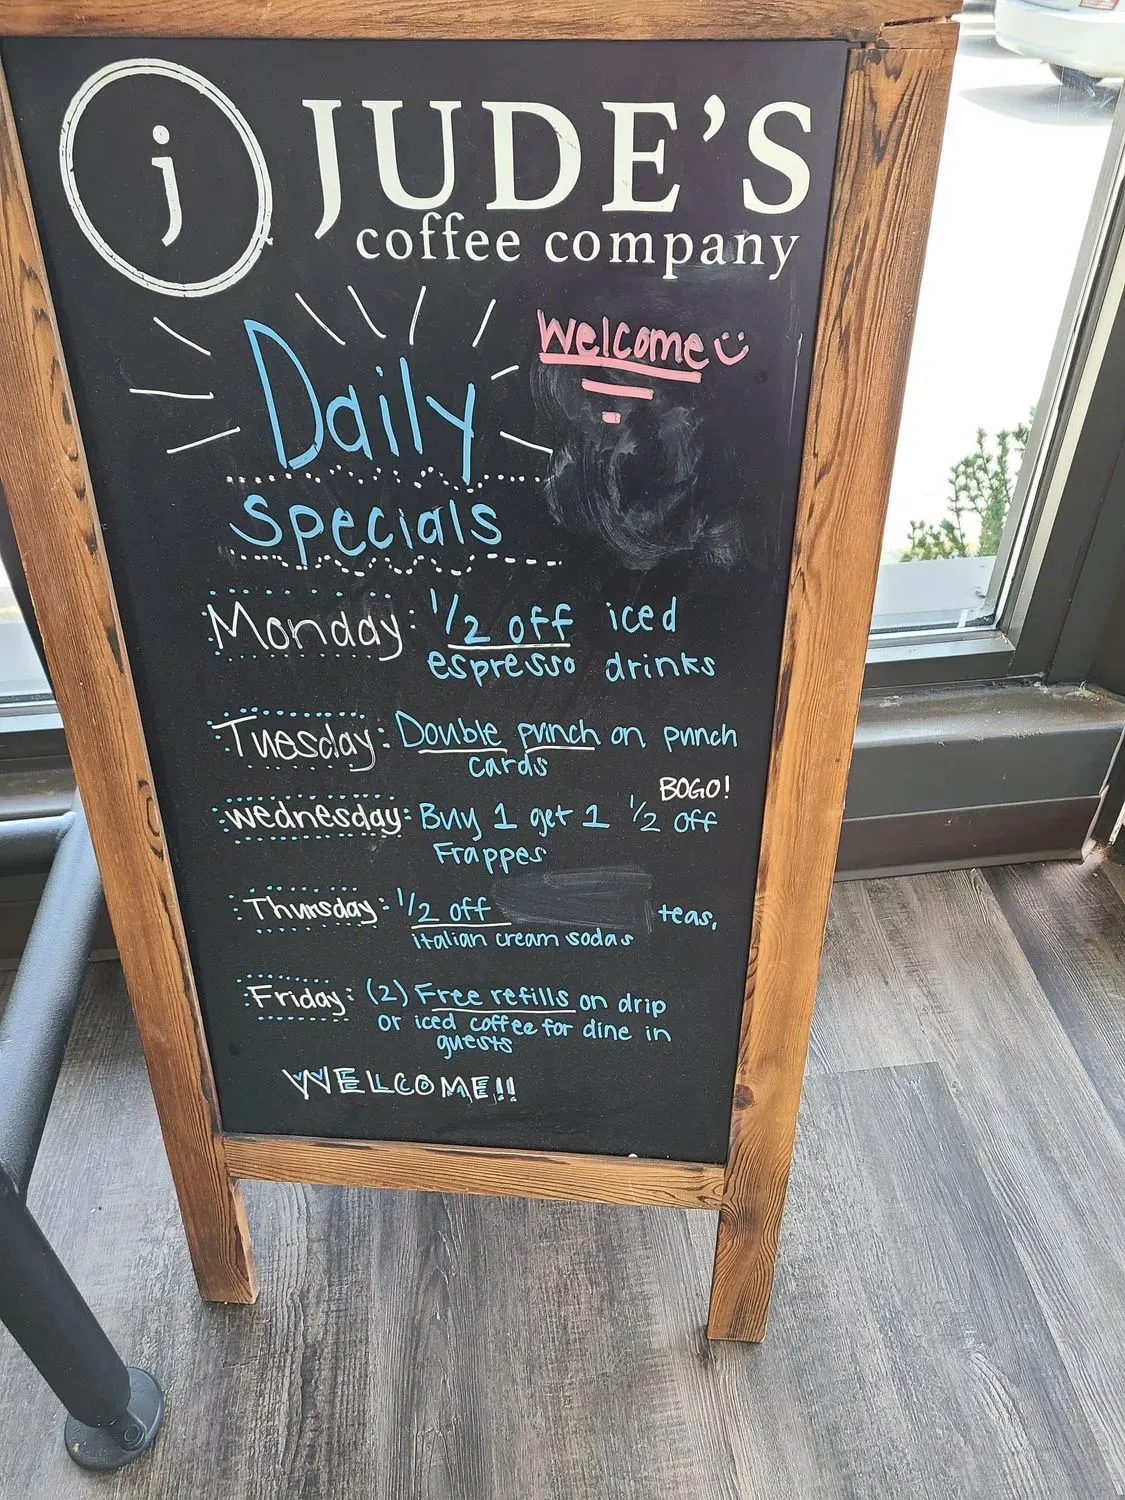 j
JUDE'S
coffee company
Welcome
Daily
Specials
Monday: 1/2 off iced
espresso drinks
Tuesday: Double punch on punch
cards
BOGO!
Wednesday: Buy 1 get 1 1/2 off
Frappes
Thursday: 1/2 off teas,
italian cream sodas
Friday: (2) Free refills on drip
or iced coffee for dine in
guests
WELCOME!!